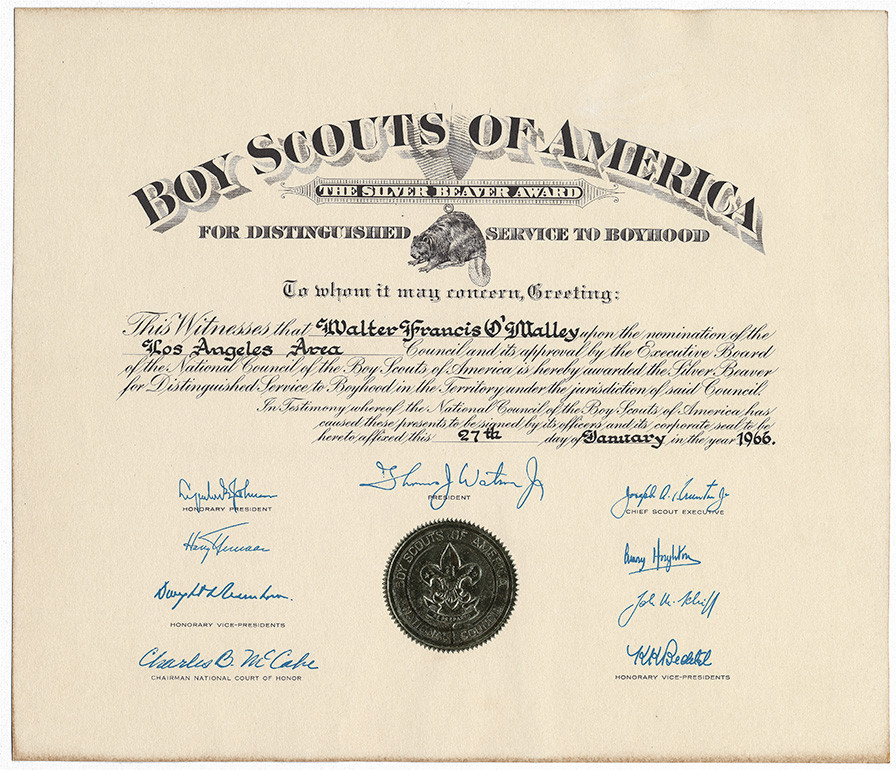 BOY SCOUTS OF AMERICA
THE SILVER BEAVER AWARD
FOR DISTINGUISHED SERVICE TO BOYHOOD
To whom it may concern, Greeting:
This Witnesses that Walter Francis O'Malley upon the nomination of the
Los Angeles Area Council and its approval by the Executive Board
of the National Council of the Boy Scouts of America is hereby awarded the Silver Beaver
for Distinguished Service to Boyhood in the Territory under the jurisdiction of said Council.
In Testimony whereof the National Council of the Boy Scouts of America has
caused these presents to be signed by its officers and its corporate seal to be
hereto affixed this 27th day of January in the year 1966.
Lyndon B. Johnson
HONORARY PRESIDENT
Thomas J Watson Jr
PRESIDENT
Joseph A. Brunton Jr
CHIEF SCOUT EXECUTIVE
Harry Truman
Amory Houghton
Dwight D Eisenhower
John M. Schiff
HONORARY VICE-PRESIDENTS
Charles B. McCabe
CHAIRMAN NATIONAL COURT OF HONOR
KK Bechtel
HONORARY VICE-PRESIDENTS
BOY SCOUTS OF AMERICA
NATIONAL COUNCIL
BE PREPARED